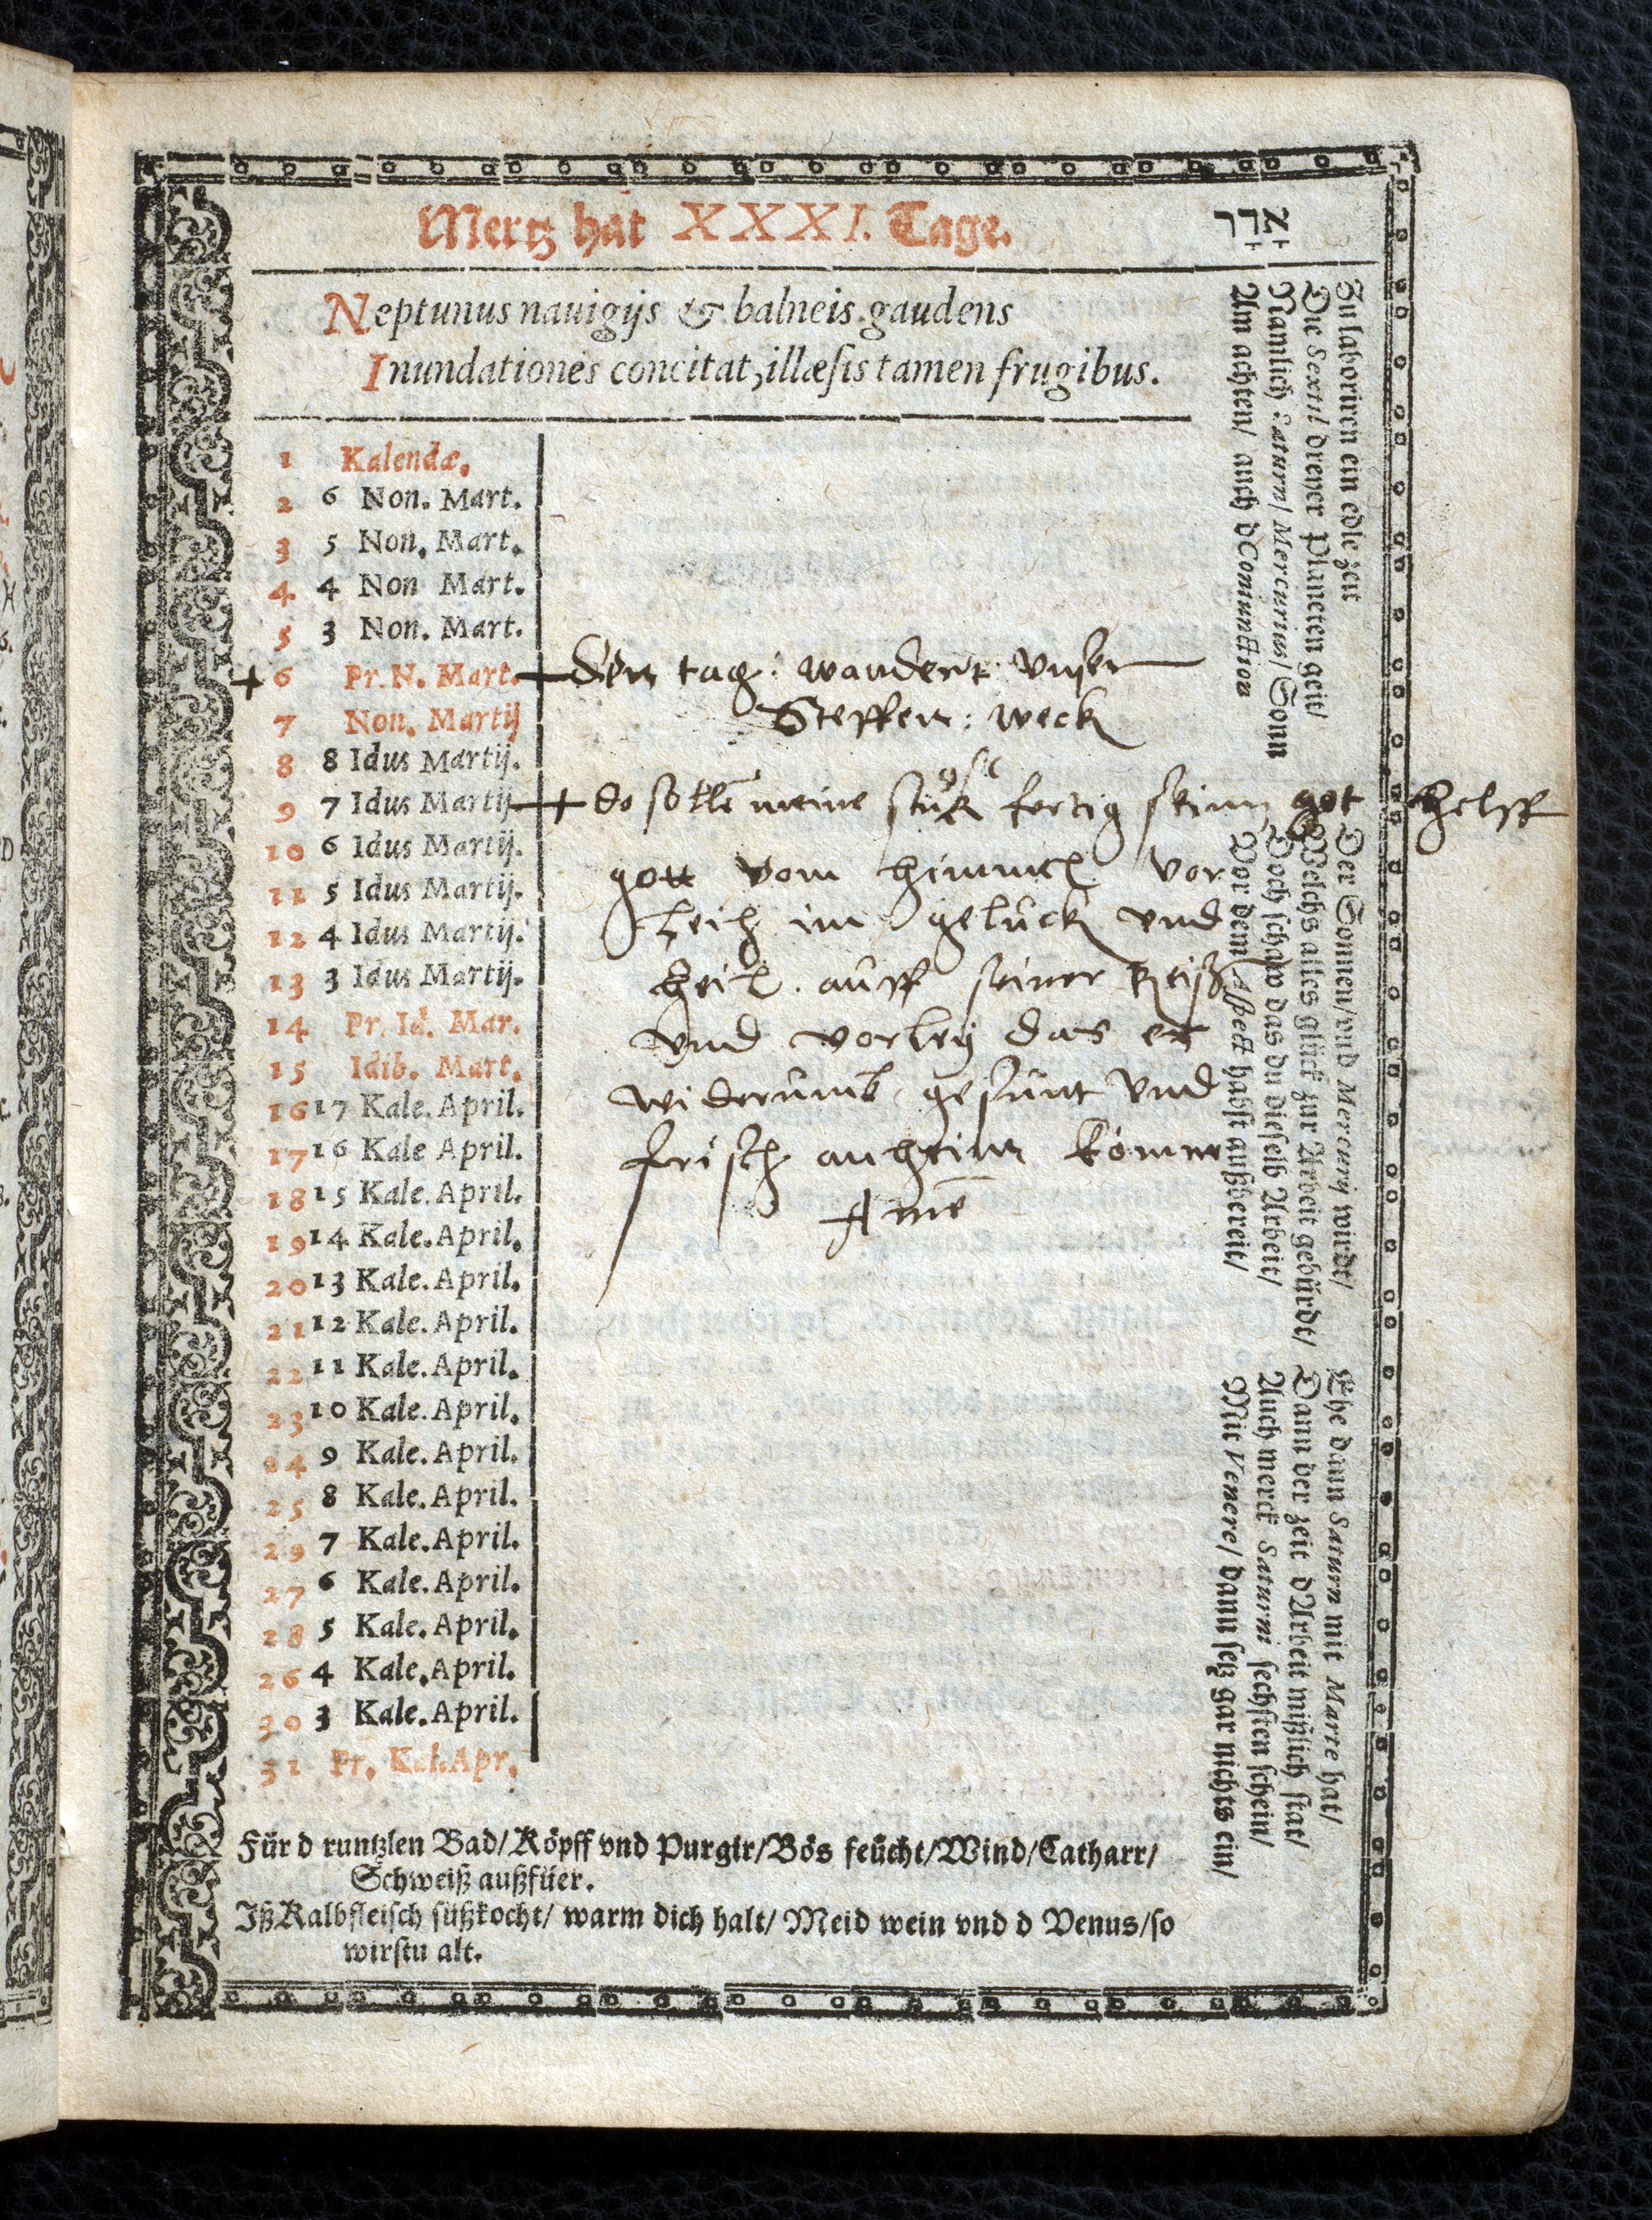 Mertz hat XXXI. Tage.
אדר
Neptunus nauigijs & balneis gaudens
Inundationes concitat, illæsis tamen frugibus.
1 Kalendæ.
2 6 Non. Mart.
3 5 Non. Mart.
4 4 Non Mart.
5 3 Non. Mart.
+ 6 Pr. N. Mart. + den tag: wandert vnser
7 Non. Martij Steffen: weck
8 8 Idus Martij.
9 7 Idus Martij + do sollē meine stuk fertig seinn got helff
10 6 Idus Martij. gott vom himmel vor
11 5 Idus Martij. leih im gelück vnd
12 4 Idus Martij.
13 3 Idus Martij. heil auff seiner Reiß
14 Pr. Id. Mar. vnd vorley das er
15 Idib. Mart. widerumb gesunt vnd
16 17 Kale. April.
17 16 Kale April. frisch anheim kömme
18 15 Kale. April. Amē
19 14 Kale. April.
20 13 Kale. April.
21 12 Kale. April.
22 11 Kale. April.
23 10 Kale. April.
24 9 Kale. April.
25 8 Kale. April.
29 7 Kale. April.
27 6 Kale. April.
28 5 Kale. April.
26 4 Kale. April.
30 3 Kale. April.
31 Pr. Kal. Apr.
Für d runtzlen Bad/ Köpff vnd Purgir/ Bös feücht/ Wind/ Catharr/
Schweiß außfüer.
Iß Kalbfleisch süßkocht/ warm dich halt/ Meid wein vnd d Venus/ so
wirstu alt.
Zu laboriren ein edle zeit
Die Sextil dreyer Planeten geit/
Namlich Saturn/ Mercurius/ Sonn
Am achten/ auch d Coniunction
Der Sonnen/ vnd Mercurij wirdt/
Welchs alles glück zur Arbeit gebürdt/
Doch schaw das du dieselb Arbeit/
Vor dem Aspect habst außbereit/
Ehe dann Saturn mit Marte hat/
Dann der zeit dArbeit mißlich stat/
Auch merck Saturni sechsten schein/
Mit Venere/ dann setz gar nichts ein/